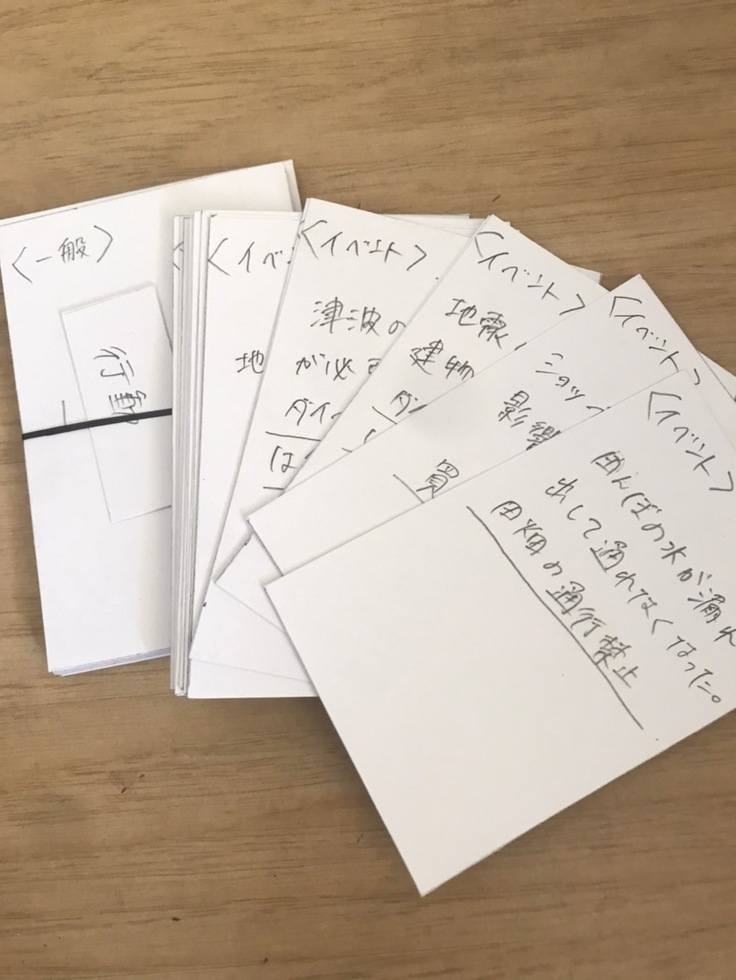 〈一般〉
行動
〈イベ
地
〈イベント〉
津波の
が必
ダイ
は
〈イベント〉
地震
建物
ダイ
〈イベント〉
ショッ
影響
買
〈イベント〉
田んぼの水が漏れ
出して通れなくなった。
田畑の通行禁止